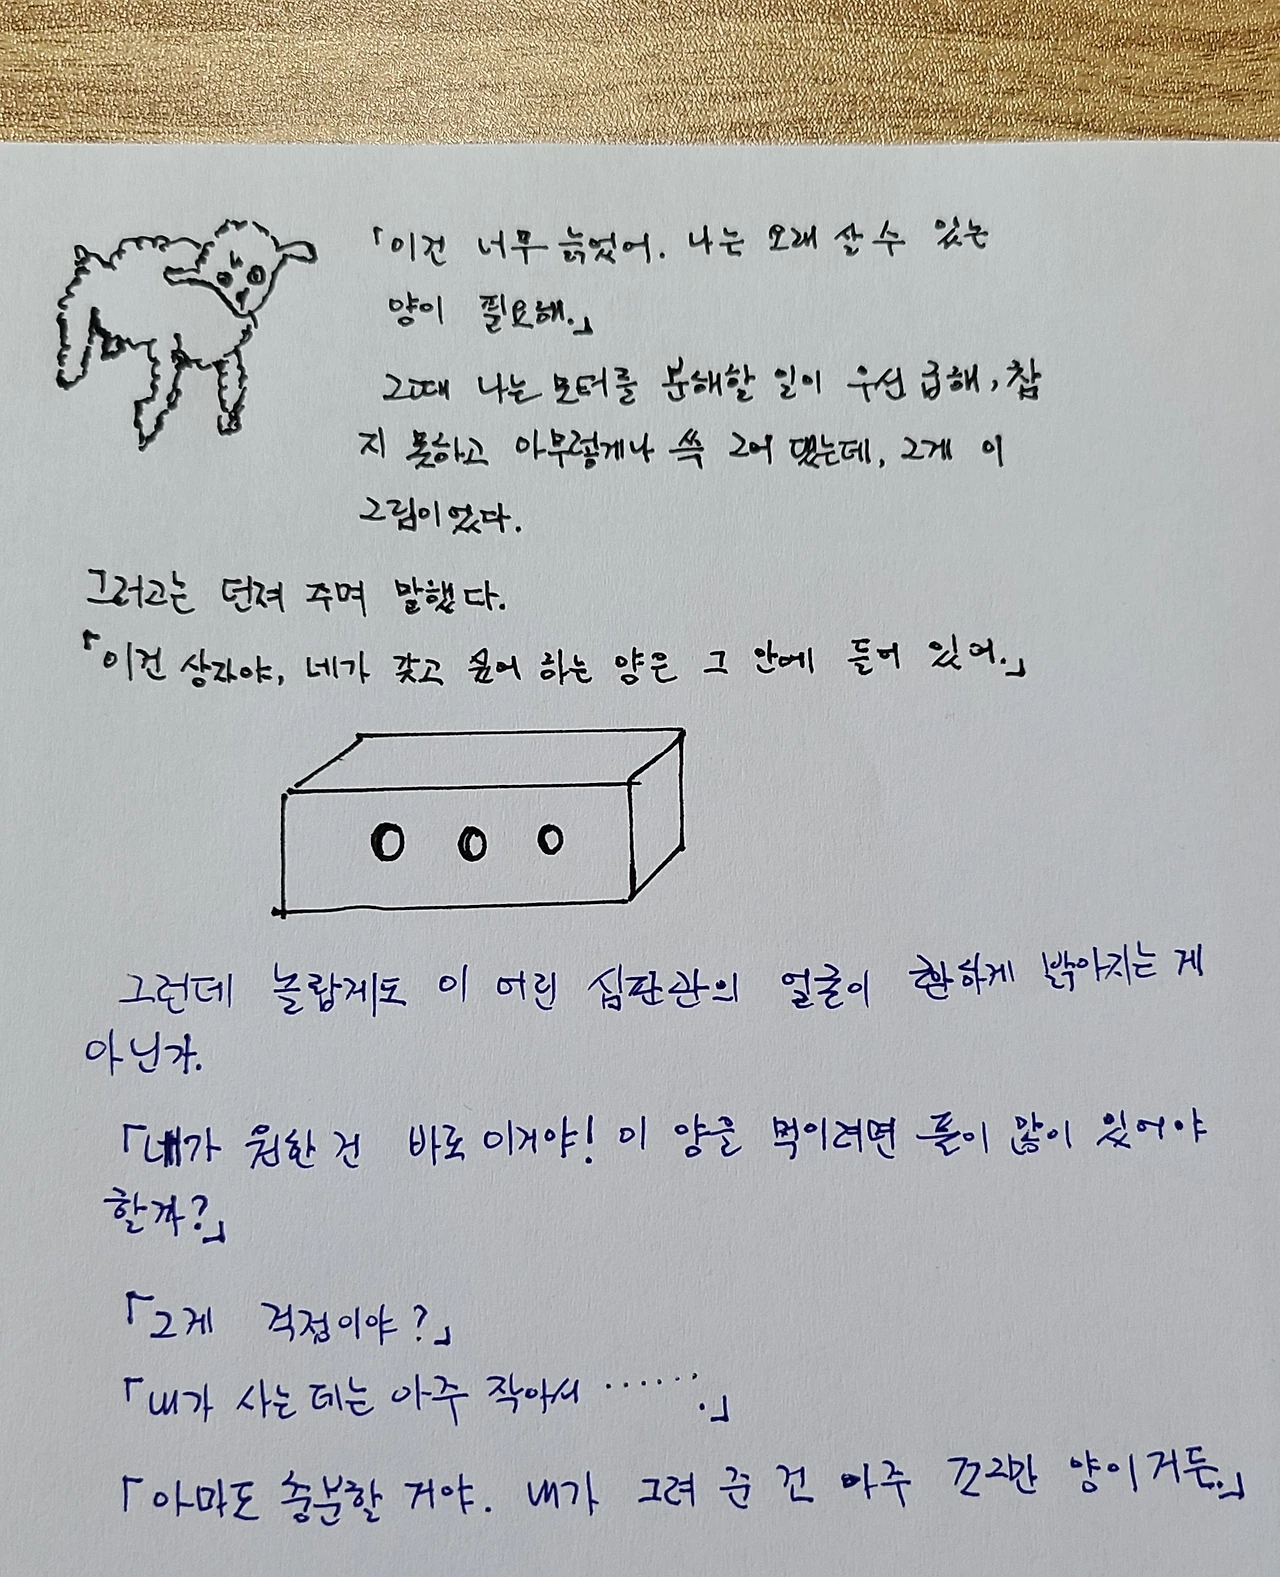 「이건 너무 늙었어. 나는 오래 살 수 있는
양이 필요해.」
그때 나는 모터를 분해할 일이 우선 급해, 참
지 못하고 아무렇게나 쓱 그어 댔는데, 그게 이
그림이었다.
그러고는 던져 주며 말했다.
「이건 상자야, 네가 갖고 싶어 하는 양은 그 안에 들어 있어.」
그런데 놀랍게도 이 어린 심판관의 얼굴이 환하게 밝아지는 게
아닌가.
「내가 원한 건 바로 이거야! 이 양을 먹이려면 풀이 많이 있어야
할까?」
「그게 걱정이야?」
「내가 사는 데는 아주 작아서 …….」
「아마도 충분할 거야. 내가 그려 준 건 아주 꼬마 양이거든.」